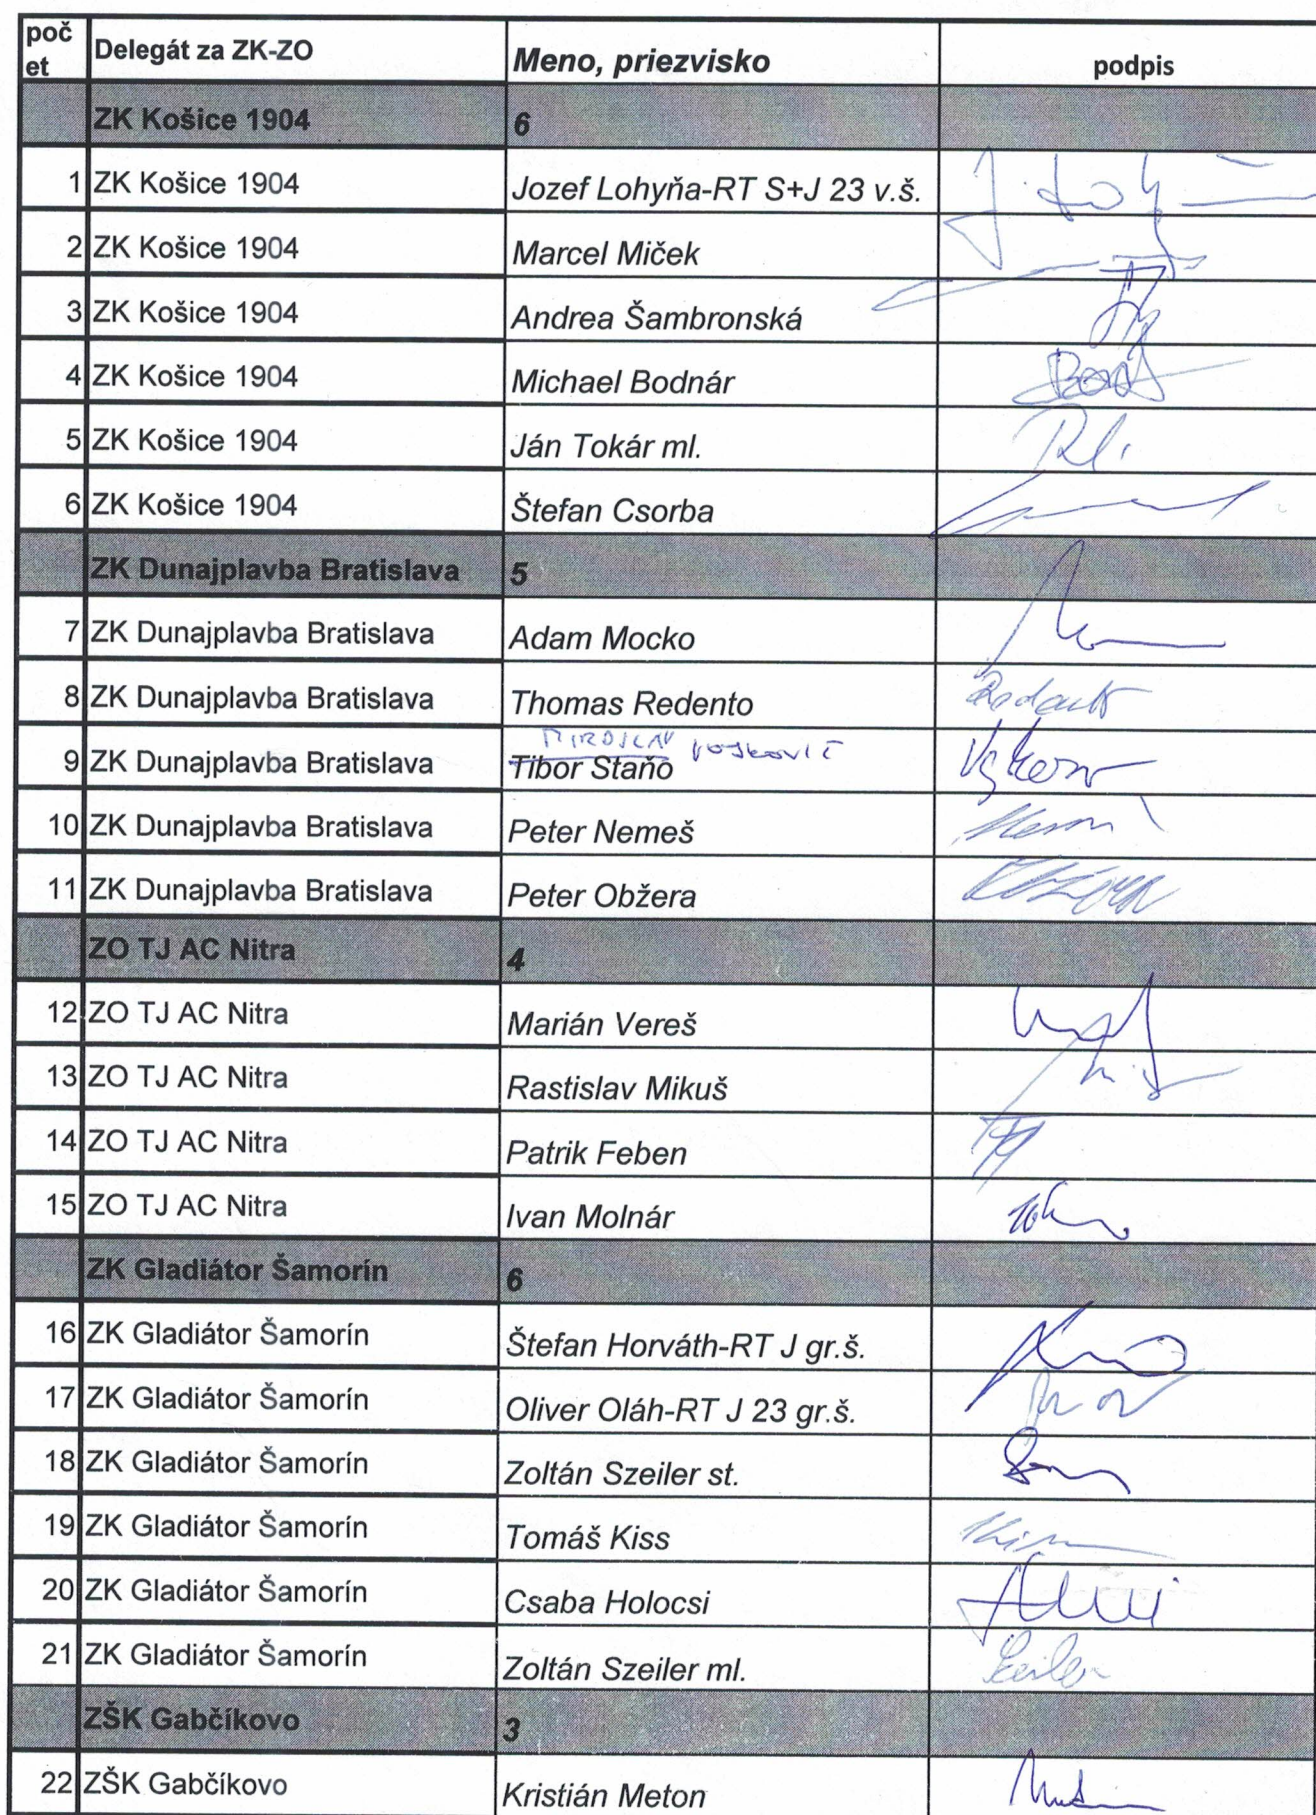 počet Delegát za ZK-ZO Meno, priezvisko podpis
ZK Košice 1904 6
1 ZK Košice 1904 Jozef Lohyňa-RT S+J 23 v.š.
2 ZK Košice 1904 Marcel Miček
3 ZK Košice 1904 Andrea Šambronská
4 ZK Košice 1904 Michael Bodnár
5 ZK Košice 1904 Ján Tokár ml.
6 ZK Košice 1904 Štefan Csorba
ZK Dunajplavba Bratislava 5
7 ZK Dunajplavba Bratislava Adam Mocko
8 ZK Dunajplavba Bratislava Thomas Redento
MIROSLAV
9 ZK Dunajplavba Bratislava Tibor Staňo
10 ZK Dunajplavba Bratislava Peter Nemeš
11 ZK Dunajplavba Bratislava Peter Obžera
ZO TJ AC Nitra 4
12 ZO TJ AC Nitra Marián Vereš
13 ZO TJ AC Nitra Rastislav Mikuš
14 ZO TJ AC Nitra Patrik Feben
15 ZO TJ AC Nitra Ivan Molnár
ZK Gladiátor Šamorín 6
16 ZK Gladiátor Šamorín Štefan Horváth-RT J gr.š.
17 ZK Gladiátor Šamorín Oliver Oláh-RT J 23 gr.š.
18 ZK Gladiátor Šamorín Zoltán Szeiler st.
19 ZK Gladiátor Šamorín Tomáš Kiss
20 ZK Gladiátor Šamorín Csaba Holocsi
21 ZK Gladiátor Šamorín Zoltán Szeiler ml.
ZŠK Gabčíkovo 3
22 ZŠK Gabčíkovo Kristián Meton